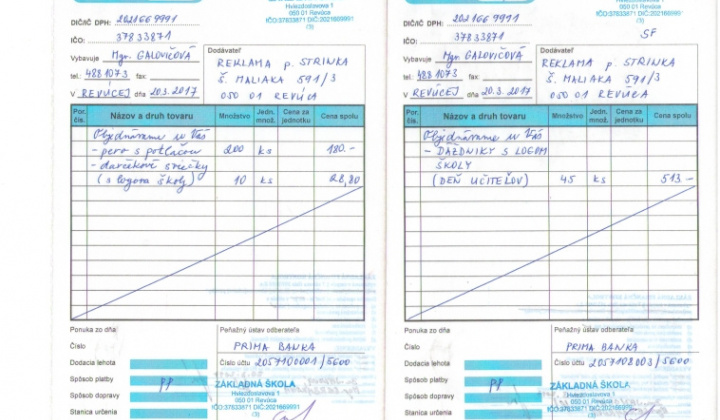 Hviezdoslavova 1
050 01 Revúca
IČO:37833871 DIČ:2021669991
(3)
DIČ/IČ DPH: 2021669991
IČO: 37833871
Vybavuje Mgr. GALOVIČOVÁ
tel.: 4881073 fax:
V REVÚCEJ dňa 20.3.2017
Dodávateľ
REKLAMA p. STRINKA
Š. MALIAKA 591/3
050 01 REVÚCA
Por. čís. Názov a druh tovaru Množstvo Jedn. množ. Cena za jednotku Cena spolu
Objednávame u Vás
- pero s potlačou 200 ks 180.-
- darčekové sviečky
(s logom školy) 10 ks 28,80
Ponuka zo dňa
Číslo
Dodacia lehota
Spôsob platby PP
Spôsob dopravy
Stanica určenia
Peňažný ústav odberateľa
PRIMA BANKA
Číslo účtu 2057100001/5600
ZÁKLADNÁ ŠKOLA
Hviezdoslavova 1
050 01 Revúca
IČO:37833871 DIČ:2021669991
(3)
Hviezdoslavova 1
050 01 Revúca
IČO:37833871 DIČ:2021669991
(3)
DIČ/IČ DPH: 2021669991
IČO: 37833871
SF
Vybavuje Mgr. GALOVIČOVÁ
tel.: 4881073 fax:
V REVÚCEJ dňa 20.3.2017
Dodávateľ
REKLAMA p. STRINKA
Š. MALIAKA 591/3
050 01 REVÚCA
Por. čís. Názov a druh tovaru Množstvo Jedn. množ. Cena za jednotku Cena spolu
Objednávame u Vás
- DÁŽDNIKY S LOGOM
ŠKOLY
(DEŇ UČITEĽOV) 45 ks 513.-
Ponuka zo dňa
Číslo
Dodacia lehota
Spôsob platby PP
Spôsob dopravy
Stanica určenia
Peňažný ústav odberateľa
PRIMA BANKA
Číslo účtu 2057108003/5600
ZÁKLADNÁ ŠKOLA
Hviezdoslavova 1
050 01 Revúca
IČO:37833871 DIČ:2021669991
(3)